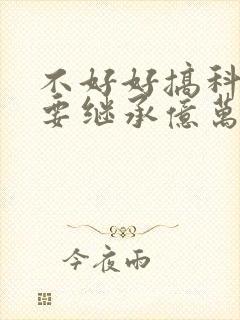 不好好搞科
要继承億萬
今夜雨